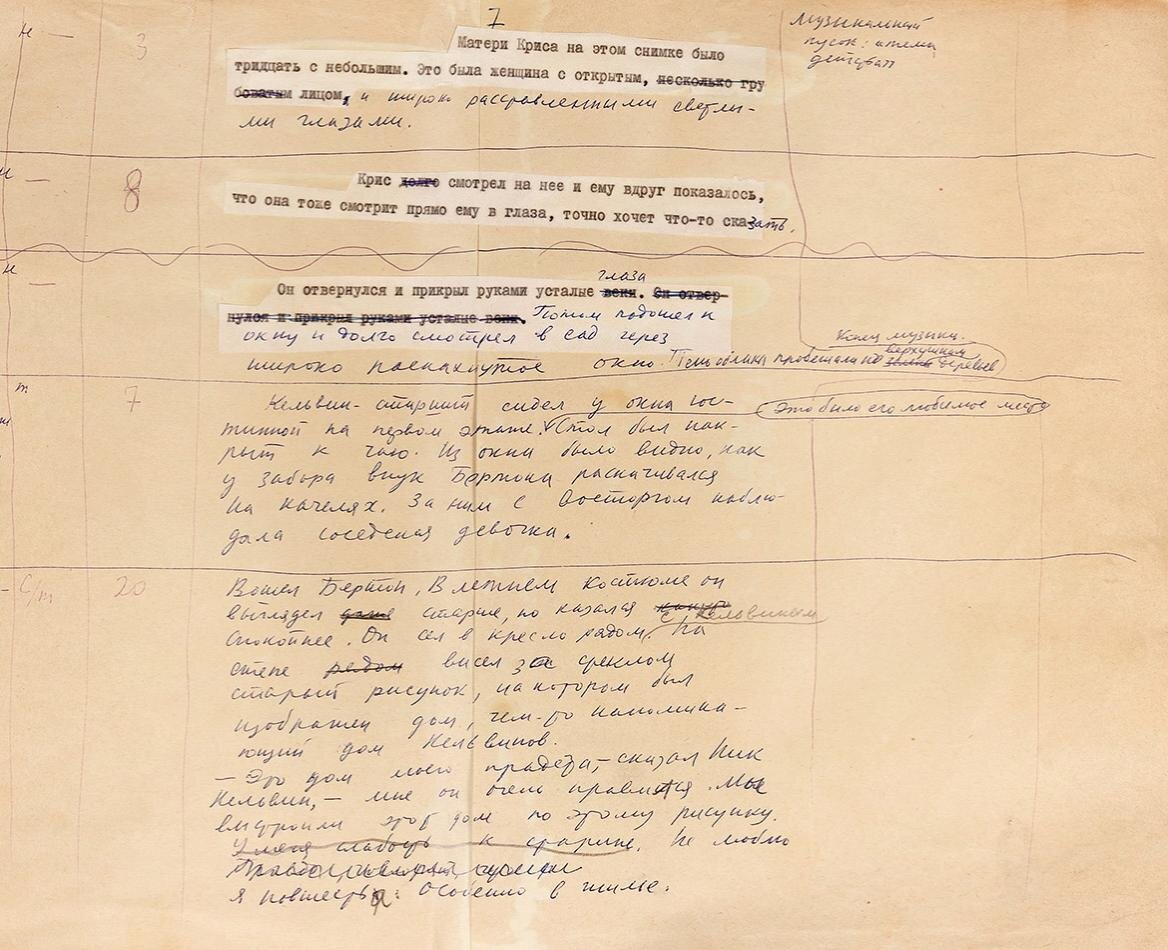 7
Музыкальный
кусок: 
н — 3
Матери Криса на этом снимке было
тридцать с небольшим. Это была женщина с открытым, несколько гру
боватым лицом, и широко расставленными светлы-
ми глазами.
н — 8
Крис долго смотрел на нее и ему вдруг показалось,
что она тоже смотрит прямо ему в глаза, точно хочет что-то сказать.
н —
глаза
Он отвернулся и прикрыл руками усталые веки. Он отвер-
нулся и прикрыл руками усталые веки. Потом подошел к
окну и долго смотрел в сад через
Конец музыки.
верхушкам
широко распахнутое окно. Тень облака пробежала по деревьев
m 7
Кельвин-старший сидел у окна гос- Это было его любимое место
тинной на первом этаже. Стол был нак-
рыт к чаю. Из окна было видно, как
у забора внук Бертона раскачивался
на качелях. За ним с восторгом наблю-
дала соседская девочка.
С/m 20
Вошел Бертон, В летнем костюме он
выглядел даже старше, но казался
с Кельвиным
спокойнее. Он сел в кресло рядом. На
стене рядом висел за стеклом
старый рисунок, на котором был
изображен дом, чем-то напомина-
ющий дом Кельвинов.
— Это дом моего прадеда, — сказал Ник
Кельвин, — мне он очень нравится. Мы
выстроили этот дом по этому рисунку.
У меня слабость к старине. Не люблю
я новшеств. Особенно в жилье.